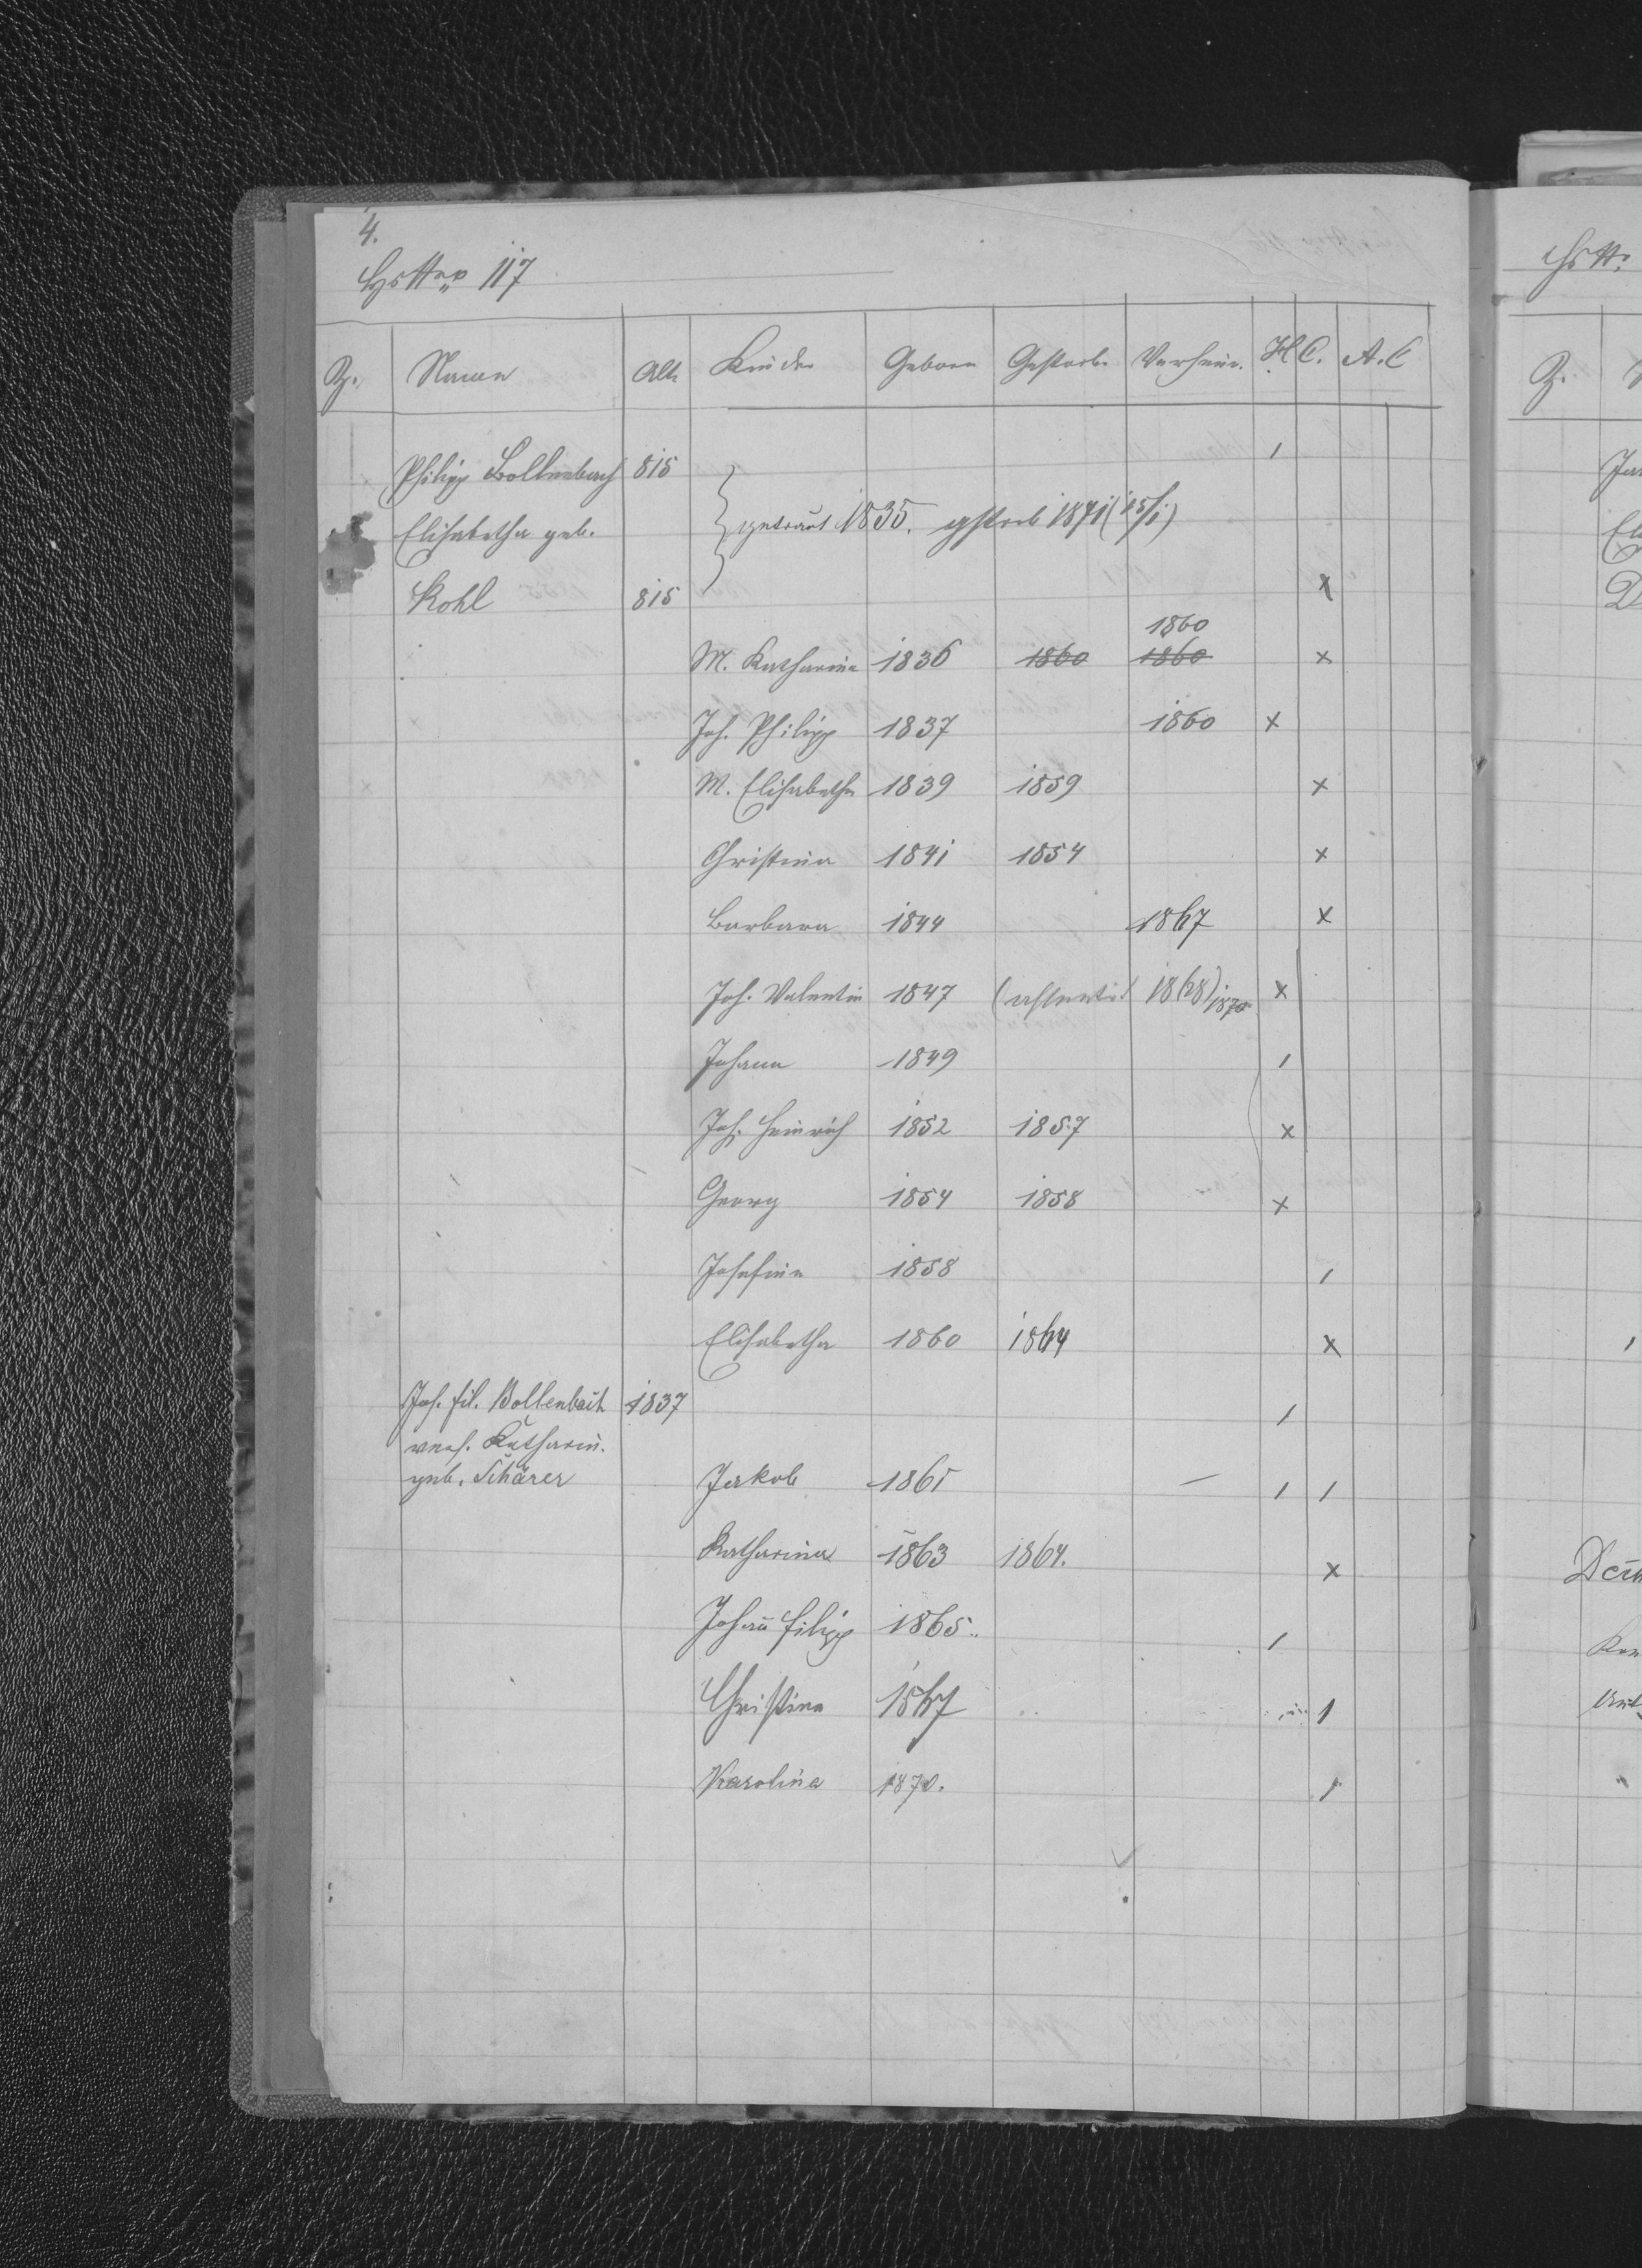 4.
HsNro 117
Z. Namen Alt. Kinder Geboren Gestorb. Verheir. H. C. A. C
Philipp Bollenbach 815 /
Elisabetha geb. } getraut 1835. gestorb 1871 (15/1)
Kohl 815 x
1860
M. Katharina 1836 1860 1860 x
Joh. Philipp 1837 1860 x
M. Elisabetha 1839 1859 x
Christina 1841 1854 x
Barbara 1844 1867 x
Joh. Valentin 1847 1868) 1870 x
Johann 1849 /
Joh. Heinrich 1852 1857 x
Georg 1854 1858 x
Josefina 1858 /
Elisabetha 1860 1864 x
Joh. fil. Bollenbach 1837 /
verh. Katharin.
geb. Schärer Jakob 1861 — / /
Katharina 1863 1864. x
Johan̄ Filipp 1865. /
Christina 1867 1
Karolina 1870. /